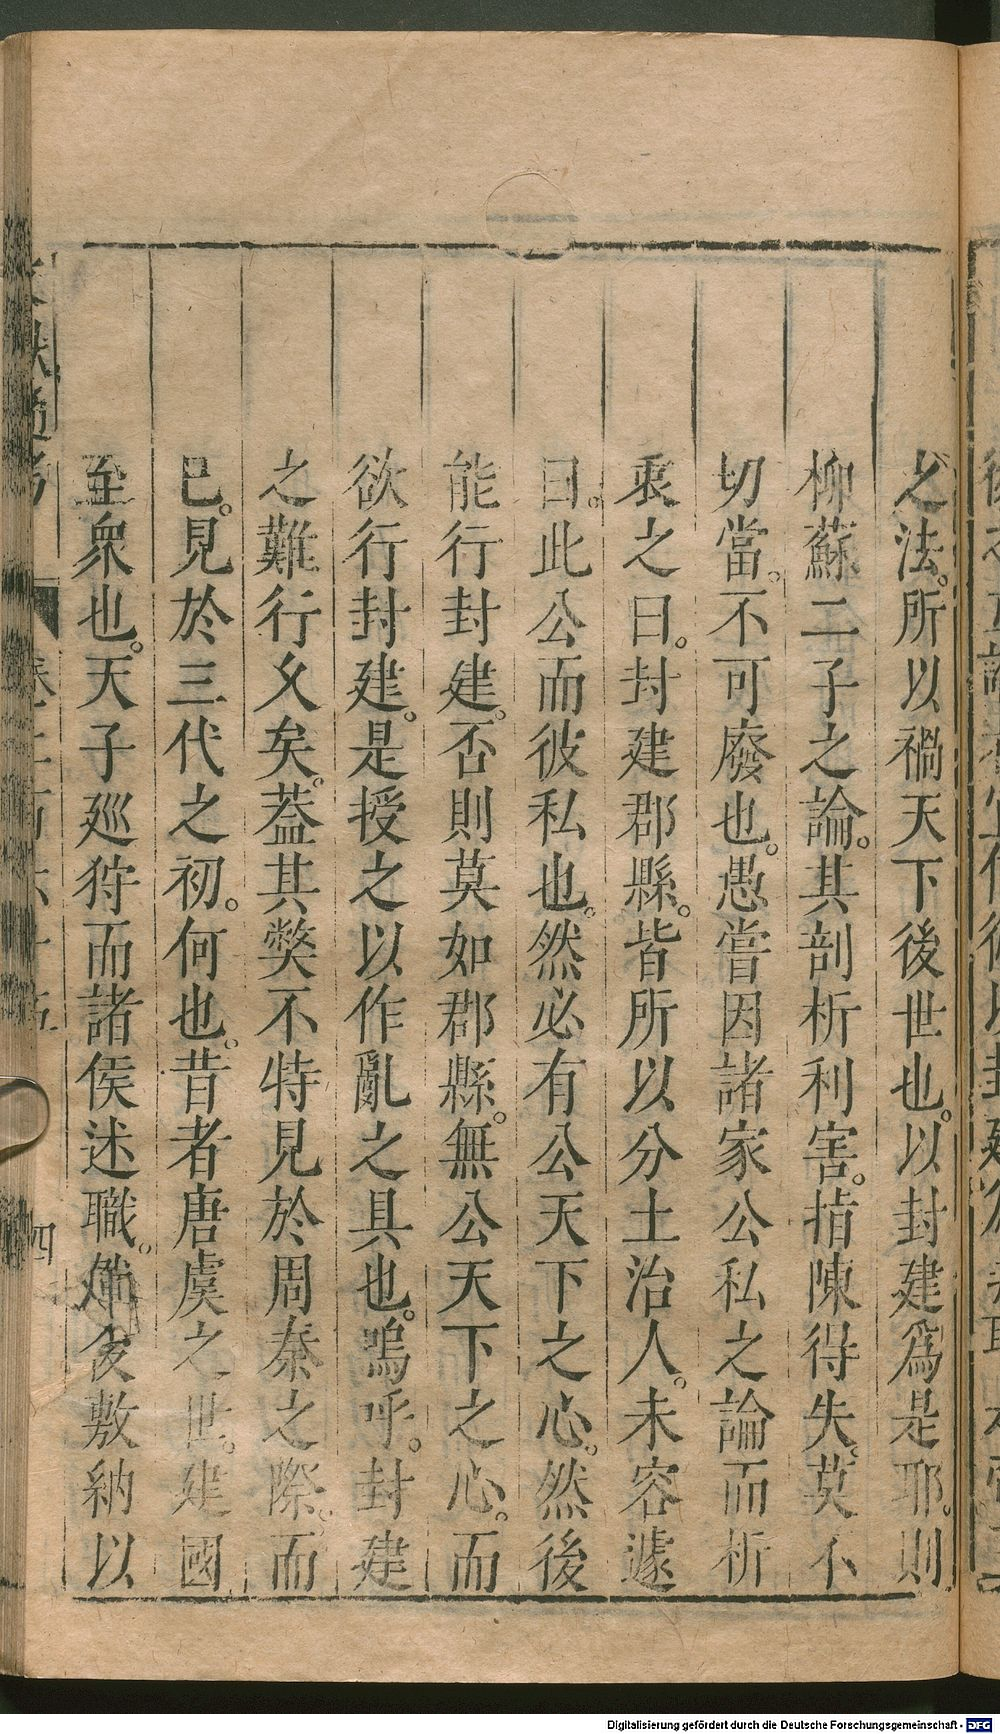 之法。所以禍天下後世也。以封建爲是耶。則
柳蘇二子之論。其剖析利害。指陳得失。莫不
切當。不可廢也。愚嘗因諸家公私之論而析
衷之曰。封建郡縣。皆所以分土治人。未容遽
曰。此公而彼私也。然必有公天下之心。然後
能行封建。否則莫如郡縣。無公天下之心。而
欲行封建。是授之以作亂之具也。嗚呼。封建
之難行久矣。葢其獘不特見於周秦之際。而
已。見於三代之初。何也。昔者唐虞之世。建國
至衆也。天子巡狩而諸侯述職。然後敷納以
四
Digitalisierung gefördert durch die Deutsche Forschungsgemeinschaft - DFG